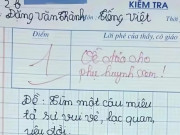 KIỂM TRA
Đặng Văn Thành Tiếng Việt
Điểm
Lời phê của thầy, cô giáo
1
Để đưa cho
phụ huynh xem!
Đề: Tìm một câu miêu
tả sự vui vẻ, lạc quan,
yêu đời.